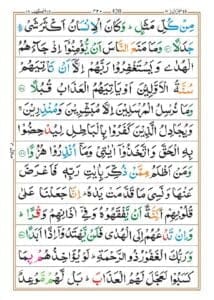 مِنْ كُلِّ مَثَلٍ ؕ وَكَانَ الْاِنْسَانُ اَكْثَرَ شَیْءٍ
جَدَلًا وَمَا مَنَعَ النَّاسَ اَنْ یُّؤْمِنُوْۤا اِذْ جَآءَهُمُ
الْهُدٰی وَیَسْتَغْفِرُوْا رَبَّهُمْ اِلَّاۤ اَنْ تَاْتِیَهُمْ
سُنَّةُ الْاَوَّلِیْنَ اَوْ یَاْتِیَهُمُ الْعَذَابُ قُبُلًا
وَمَا نُرْسِلُ الْمُرْسَلِیْنَ اِلَّا مُبَشِّرِیْنَ وَمُنْذِرِیْنَ ۚ
وَیُجَادِلُ الَّذِیْنَ كَفَرُوْا بِالْبَاطِلِ لِیُدْحِضُوْا
بِهِ الْحَقَّ وَاتَّخَذُوْۤا اٰیٰتِیْ وَمَاۤ اُنْذِرُوْا هُزُوًا
وَمَنْ اَظْلَمُ مِمَّنْ ذُكِّرَ بِاٰیٰتِ رَبِّهٖ فَاَعْرَضَ
عَنْهَا وَنَسِیَ مَا قَدَّمَتْ یَدٰهُ ؕ اِنَّا جَعَلْنَا عَلٰی
قُلُوْبِهِمْ اَكِنَّةً اَنْ یَّفْقَهُوْهُ وَفِیْۤ اٰذَانِهِمْ وَقْرًا ؕ
وَاِنْ تَدْعُهُمْ اِلَی الْهُدٰی فَلَنْ یَّهْتَدُوْۤا اِذًا اَبَدًا
وَرَبُّكَ الْغَفُوْرُ ذُو الرَّحْمَةِ ؕ لَوْ یُؤَاخِذُهُمْ بِمَا
كَسَبُوْا لَعَجَّلَ لَهُمُ الْعَذَابَ ؕ بَلْ لَّهُمْ مَّوْعِدٌ